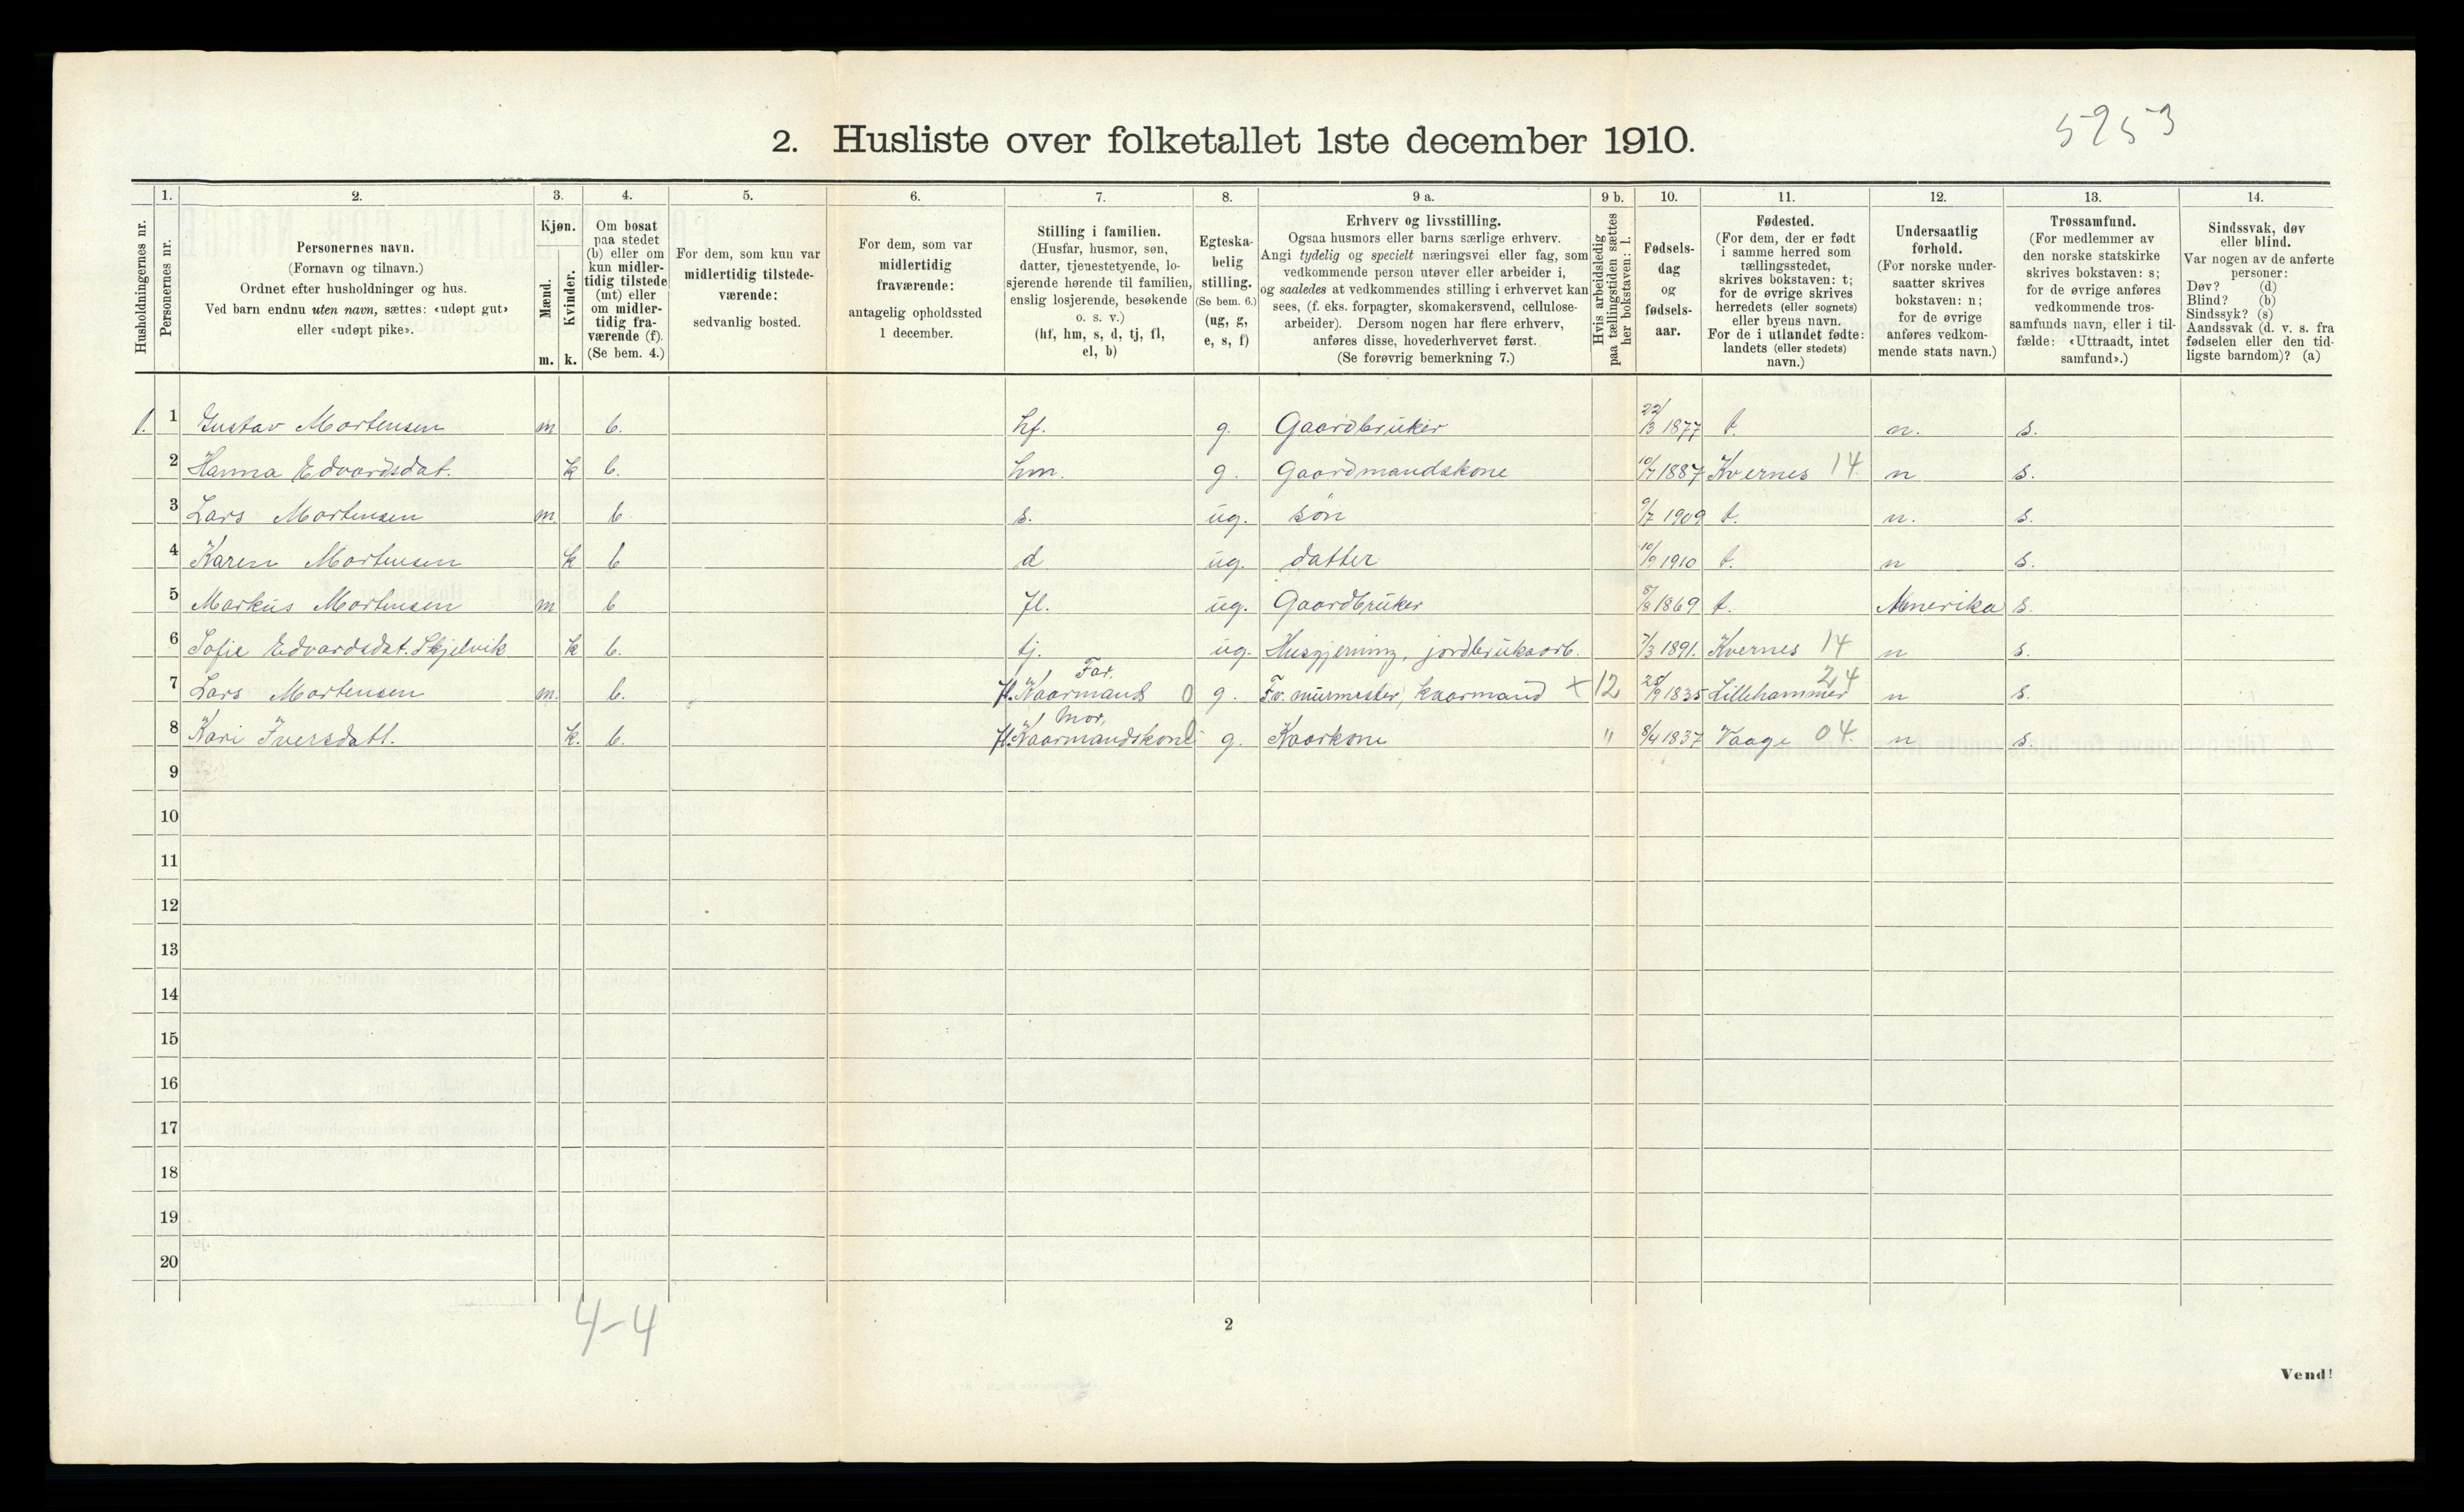 5953
2. Husliste over folketallet 1ste december 1910.
Husholdningernes nr.
1. Personernes nr.
2. Personernes navn. (Fornavn og tilnavn.) Ordnet efter husholdninger og hus. Ved barn endnu uten navn, sættes: «udøpt gut» eller «udøpt pike».
3. Kjøn. Mænd. m. Kvinder. k.
4. Om bosat paa stedet (b) eller om kun midlertidig tilstede (mt) eller om midlertidig fraværende (f). (Se bem. 4.)
5. For dem, som kun var midlertidig tilstedeværende: sedvanlig bosted.
6. For dem, som var midlertidig fraværende: antagelig opholdssted 1 december.
7. Stilling i familien. (Husfar, husmor, søn, datter, tjenestetyende, losjerende hørende til familien, enslig losjerende, besøkende o. s. v.) (hf, hm, s, d, tj, fl, el, b)
8. Egteskabelig stilling. (Se bem. 6.) (ug, g, e, s, f)
9 a. Erhverv og livsstilling. Ogsaa husmors eller barns særlige erhverv. Angi tydelig og specielt næringsvei eller fag, som vedkommende person utøver eller arbeider i, og saaledes at vedkommendes stilling i erhvervet kan sees, (f. eks. forpagter, skomakersvend, cellulosearbeider). Dersom nogen har flere erhverv, anføres disse, hovederhvervet først. (Se forøvrig bemerkning 7.)
9 b. Hvis arbeidsledig paa tællingstiden sættes her bokstaven: l.
10. Fødselsdag og fødselsaar.
11. Fødested. (For dem, der er født i samme herred som tællingsstedet, skrives bokstaven: t; for de øvrige skrives herredets (eller sognets) eller byens navn. For de i utlandet fødte: landets (eller stedets) navn.)
12. Undersaatlig forhold. (For norske undersaatter skrives bokstaven: n; for de øvrige anføres vedkommende stats navn.)
13. Trossamfund. (For medlemmer av den norske statskirke skrives bokstaven: s; for de øvrige anføres vedkommende trossamfunds navn, eller i tilfælde: «Uttraadt, intet samfund».)
14. Sindssvak, døv eller blind. Var nogen av de anførte personer: Døv? (d) Blind? (b) Sindssyk? (s) Aandssvak (d. v. s. fra fødselen eller den tidligste barndom)? (a)
1. 1 Gustav Mortensen m b. hf. g. Gaardbruker 22/3 1877 t. n. s.
2 Hanna Edvardsdat. k b. hm. g. Gaardmandskone 10/7 1887 Kvernes 14 n s.
3 Lars Mortensen m b s. ug. søn 9/7 1909 t. n. s.
4 Karen Mortensen k b d ug. datter 10/9 1910 t. n s.
5 Markus Mortensen m b fl. ug. Gaardbruker 8/8 1869 t. Amerika s.
6 Sofie Edvardsdat. Skjelvik k b. tj. ug. Husgjerning, jordbruksarb. 7/3 1891. Kvernes 14 n s.
7 Lars Mortensen m. b. fl. Kaarmand Far. 0 g. Fv. murmester, kaarmand × 12 25/9 1835 Lillehammer 24 n s.
8 Kari Iversdatt. k. b. fl. Kaarmandskone Mor, 0 g. Kaarkone " 8/4 1837 Vaage 04 n s.
9
10
11
12
13
14
15
16
17
18
19
20
4-4
2
Vend!